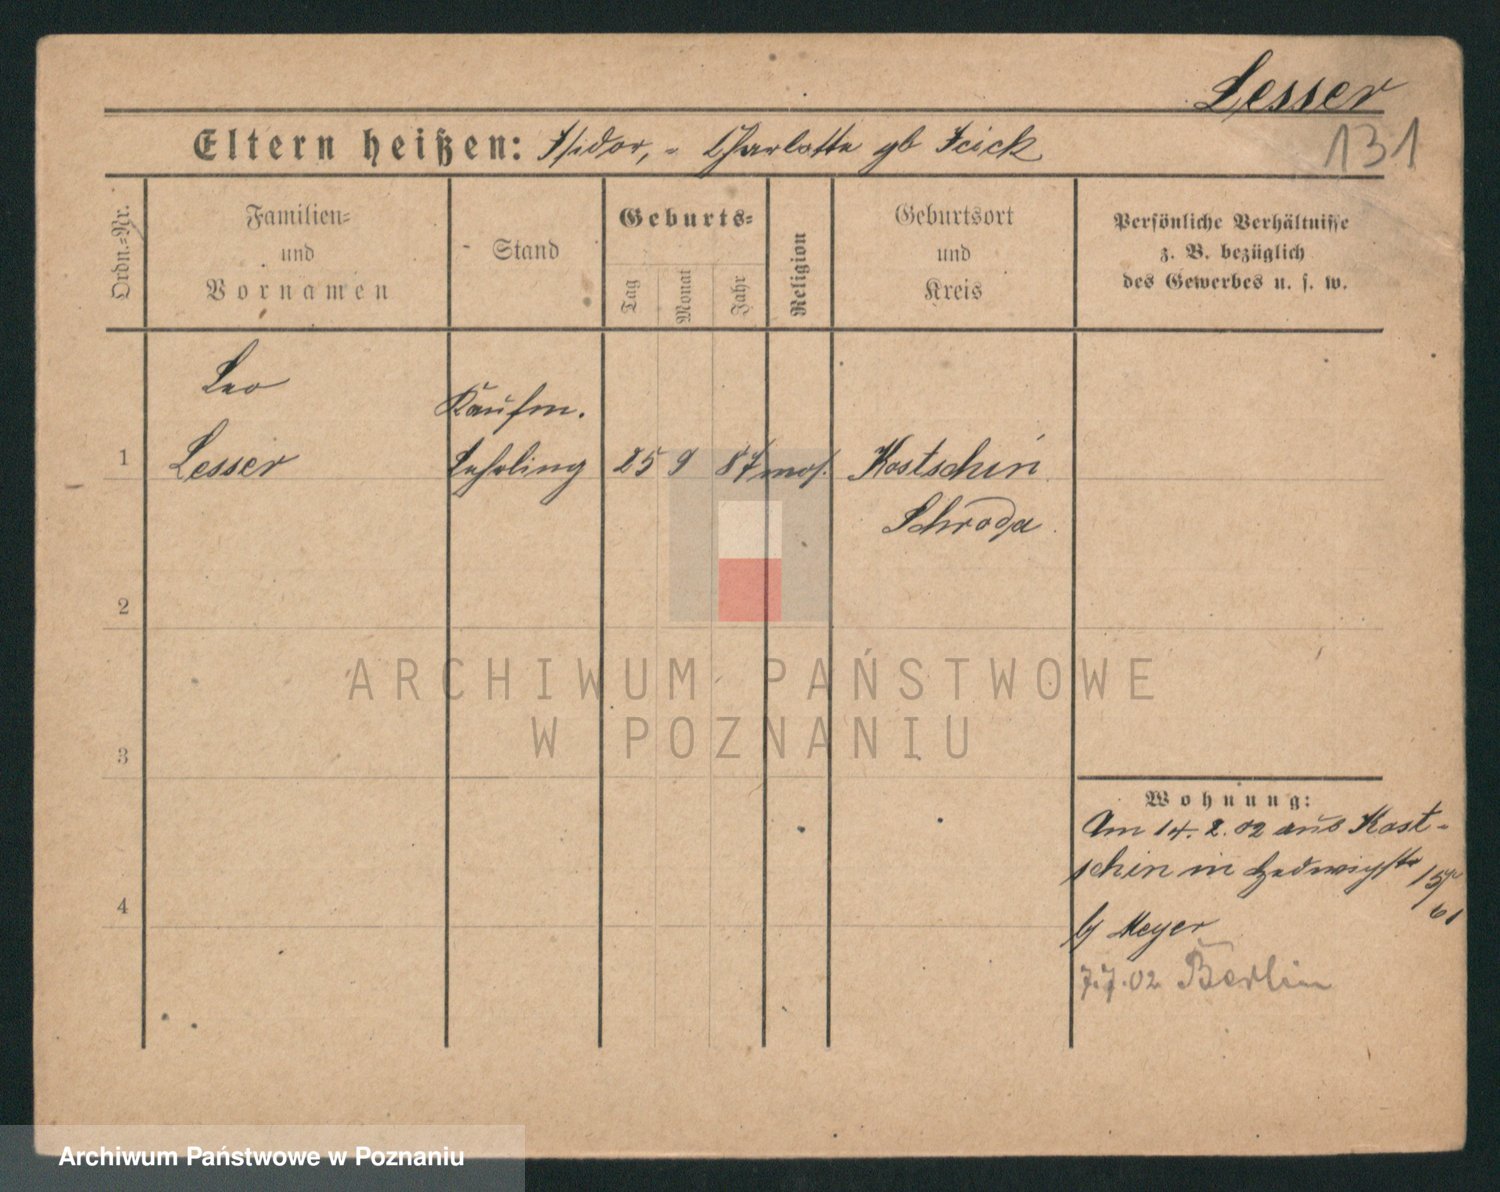 Lesser
131
Eltern heißen: Isidor, - Charlotte gb Icick
Ordn.-Nr.
Familien-
und
Vornamen
Stand
Geburts-
Tag
Monat
Jahr
Religion
Geburtsort
und
Kreis
Persönliche Verhältnisse
z. B. bezüglich
des Gewerbes u. s. w.
Leo
Kaufm.
1 Lesser Lehrling 25 9 87 mos. Kostschin
Schroda
2
ARCHIWUM PAŃSTWOWE
W POZNANIU
3
Wohnung:
Am 14. 2. 02 aus Kost-
schin in Hedwigstr 15
4
b/ Meyer
7.7.02 Berlin
Archiwum Państwowe w Poznaniu